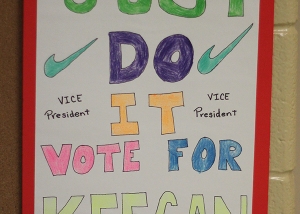 JUST
DO
VICE VICE
President IT President
VOTE FOR
KEEGAN